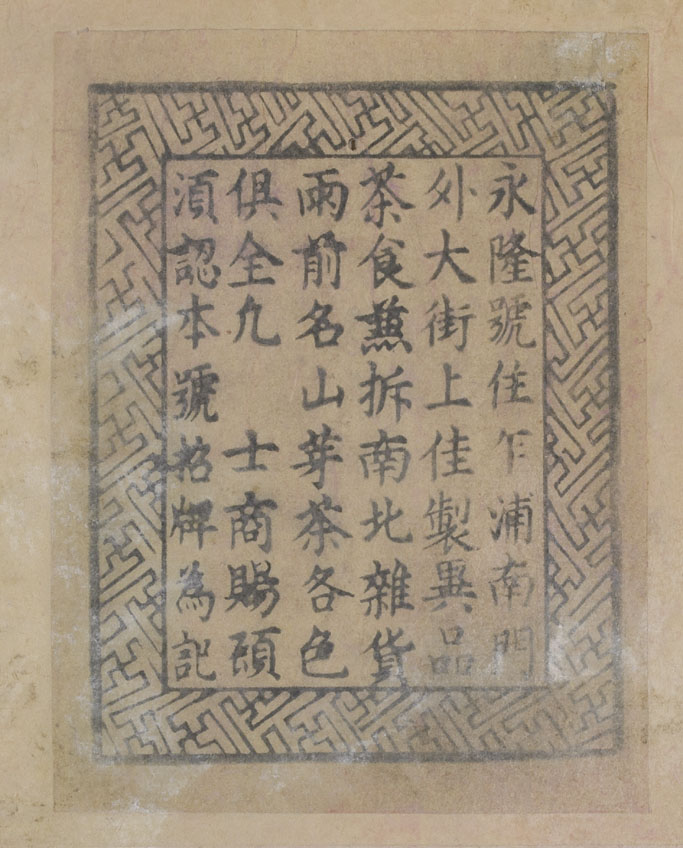 永隆號住乍浦南門
外大街上佳製異品
茶食兼拆南北雜貨
雨前名山芽茶各色
俱全凢　士商賜頋
湏認本號招牌為記